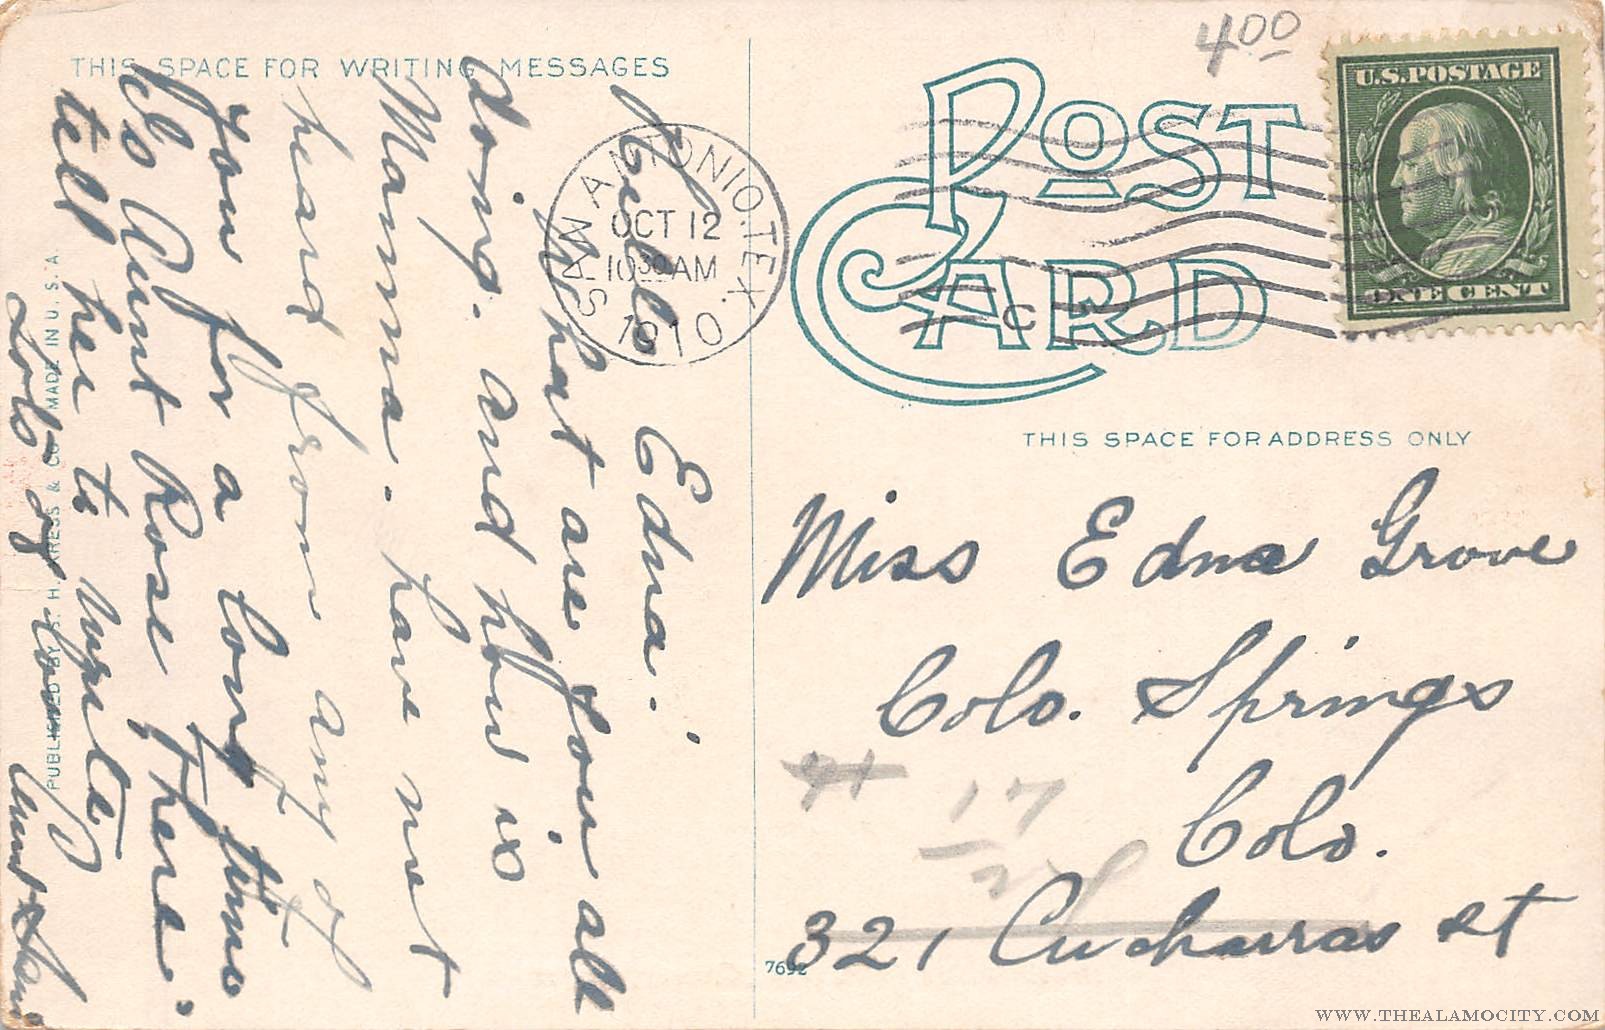 THIS SPACE FOR WRITING MESSAGES
Hello Edna.
What are you all
doing. and how is
Mamma. have not
heard from any of
you for a long time
hs Aunt Rose There
tell her to write
Lots of love
Aunt
PUBLISHED BY S. H. KRESS & CO. MADE IN U. S. A.
SAN ANTONIO. TEX.
OCT 12
10 30 AM
1910
C
POST
CARD
400
U.S. POSTAGE
ONE CENT
THIS SPACE FOR ADDRESS ONLY
Miss Edna Grove
Colo. Springs
Colo.
17
321 Cucharras St
7692
WWW.THEALAMOCITY.COM